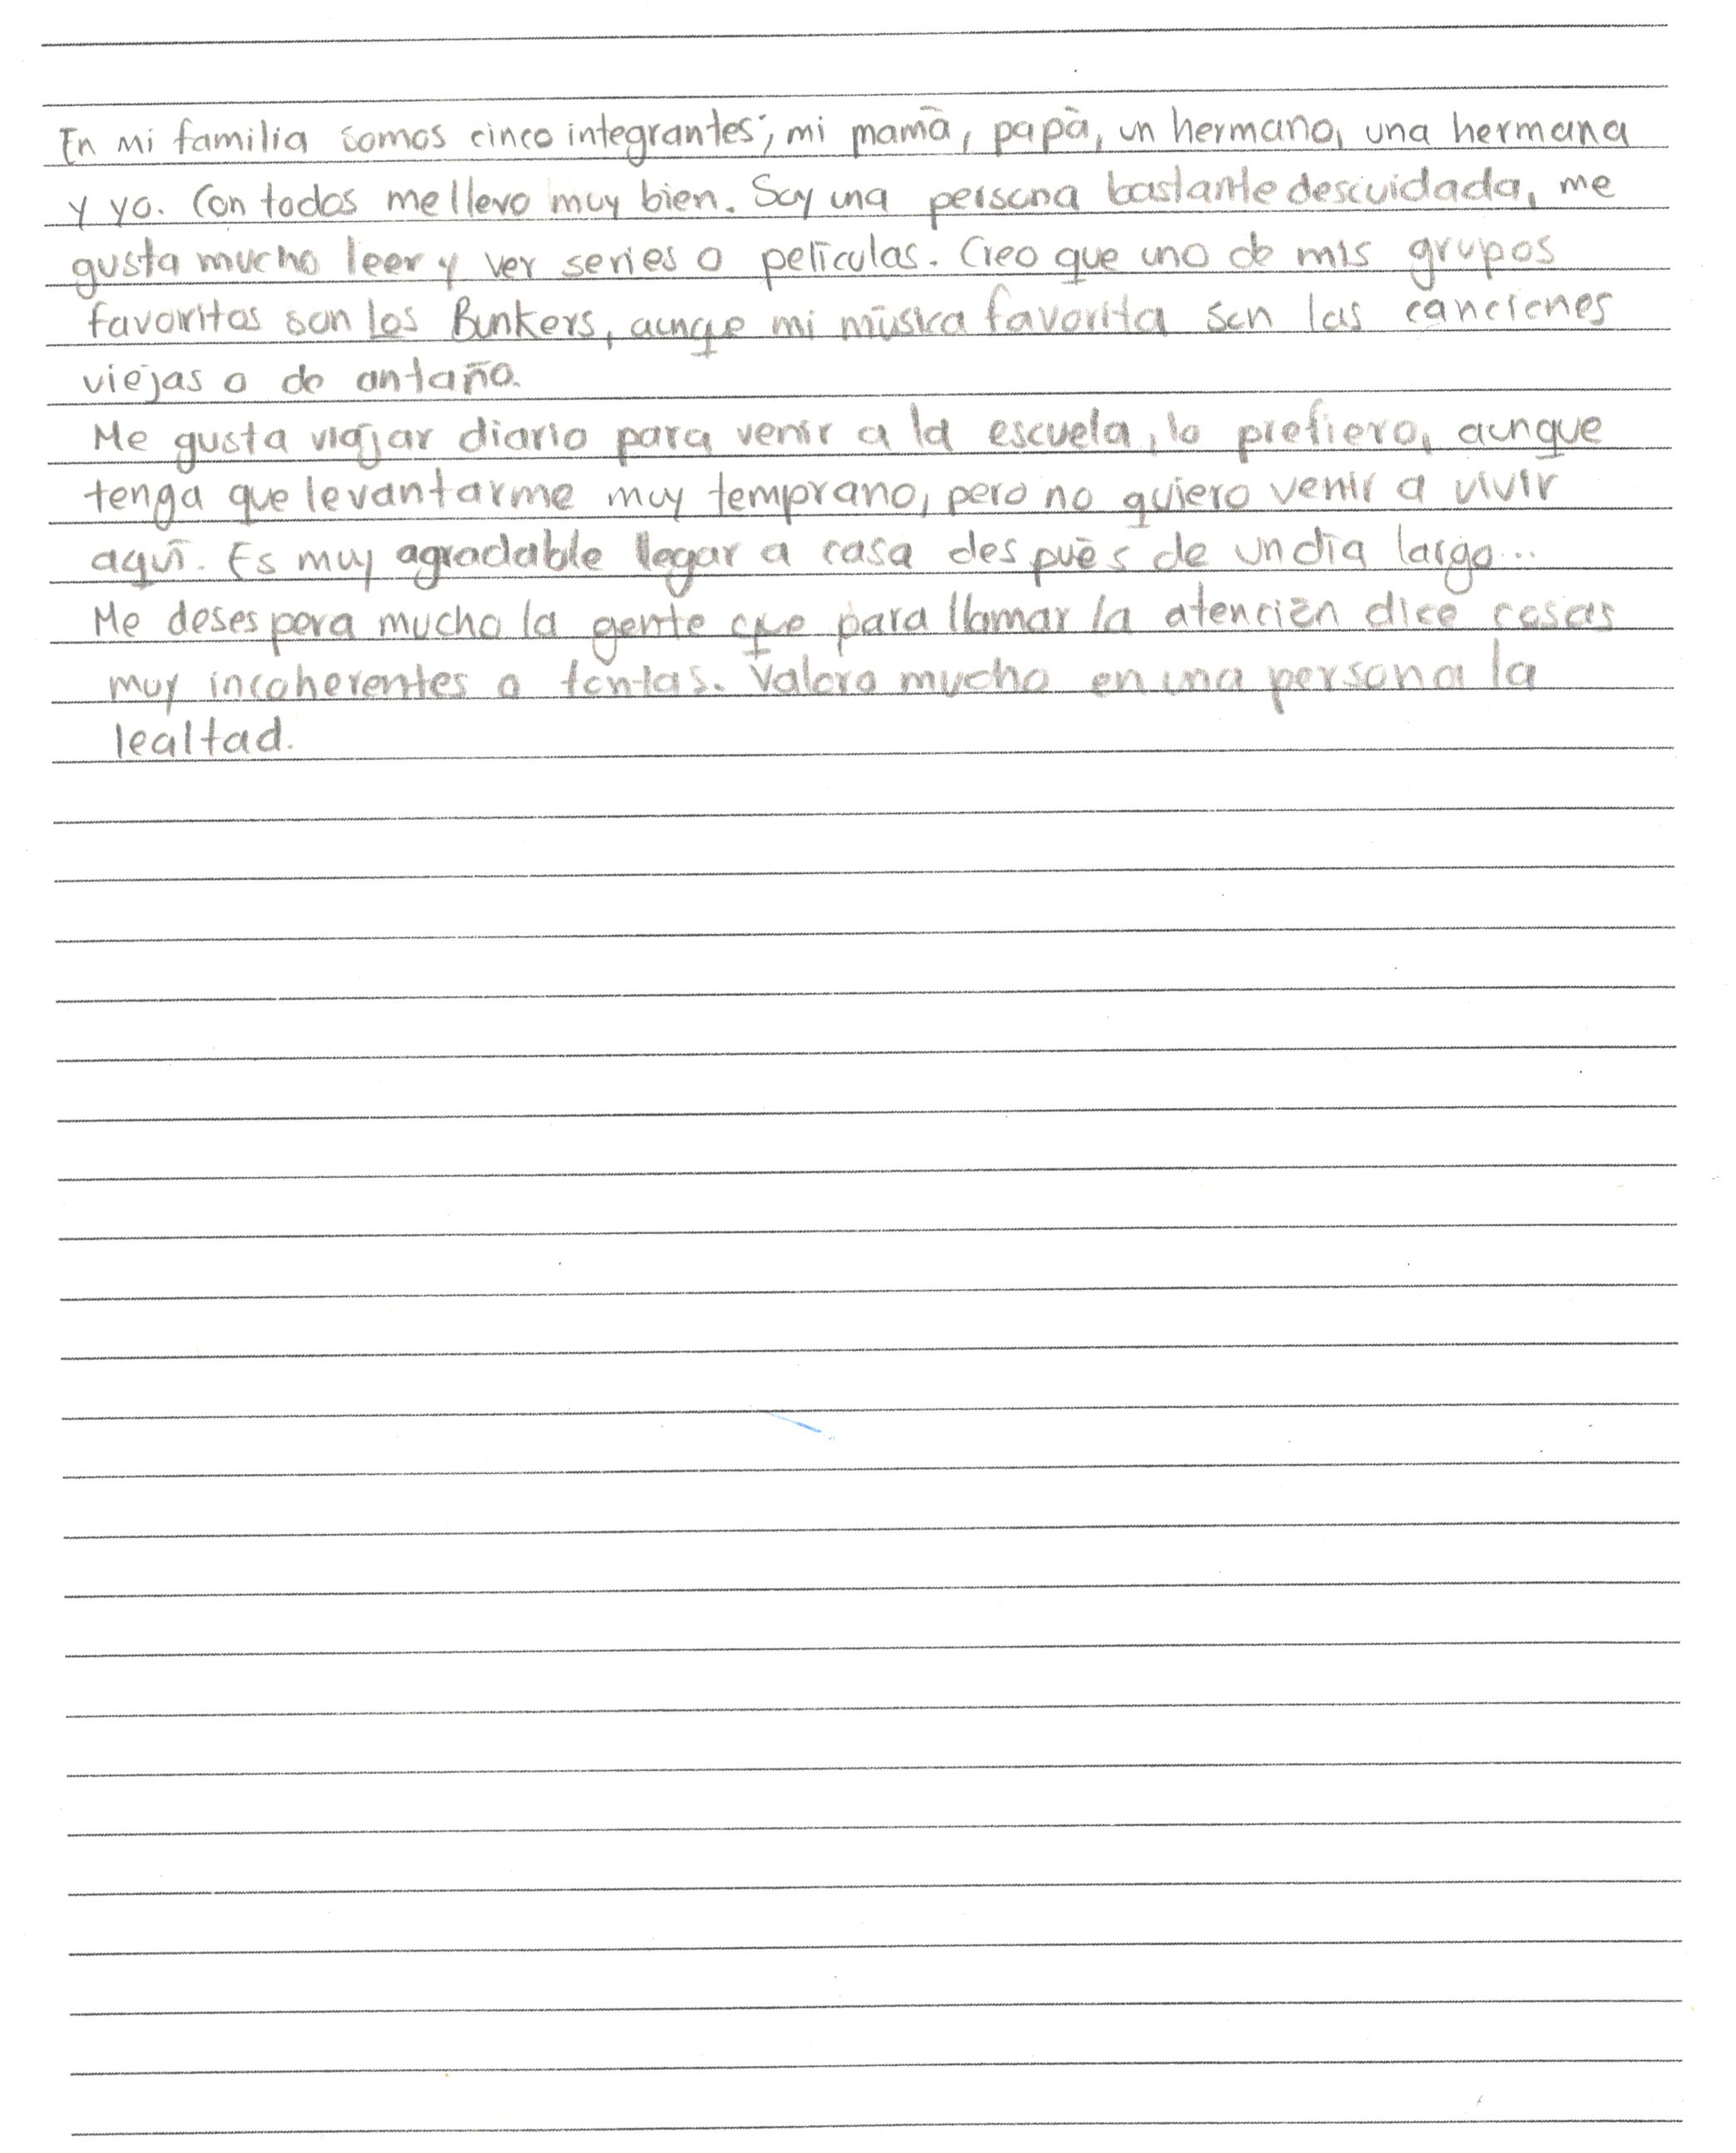 En mi familia somos cinco integrantes; mi mamá, papá, un hermano, una hermana
y yo. Con todos me llevo muy bien. Soy una persona bastante descuidada, me
gusta mucho leer y ver series o películas. Creo que uno de mis grupos
favoritos son los Bunkers, aunqe mi música favorita son las canciones
viejas o de antaño.
Me gusta viajar diario para venir a la escuela, lo prefiero, aunque
tenga que levantarme muy temprano, pero no quiero venir a vivir
aquí. Es muy agradable llegar a casa después de un día largo...
Me desespera mucho la gente que para llamar la atención dice cosas
muy incoherentes o tontas. Valoro mucho en una persona la
lealtad.